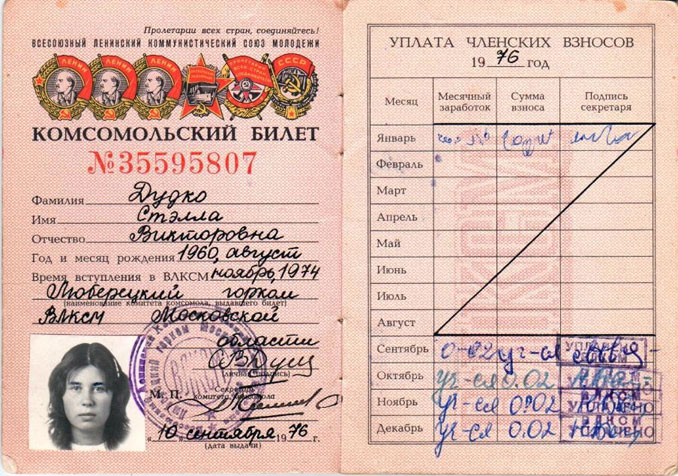 Пролетарии всех стран, соединяйтесь!
ВСЕСОЮЗНЫЙ ЛЕНИНСКИЙ КОММУНИСТИЧЕСКИЙ СОЮЗ МОЛОДЕЖИ
ЛЕНИН ЛЕНИН ЛЕНИН СССР
КОМСОМОЛЬСКИЙ БИЛЕТ
№35595807
Фамилия Дудко
Имя Стэлла
Отчество Викторовна
Год и месяц рождения 1960, август
Время вступления в ВЛКСМ ноябрь, 1974
Люберецкий горком
(наименование комитета комсомола, выдавшего билет)
ВЛКСМ Московской
области
(личная подпись)
М. П. Секретарь
комитета комсомола
"10" сентября 1976 г.
(дата выдачи)
УПЛАТА ЧЛЕНСКИХ ВЗНОСОВ
1976 год
Месяц Месячный заработок Сумма взноса Подпись секретаря
Январь
Февраль
Март
Апрель
Май
Июнь
Июль
Август
Сентябрь 0-02 уч-ся
Октябрь уч-ся 0.02
Ноябрь уч-ся 0.02 УПЛАЧЕНО
Декабрь уч-ся 0.02